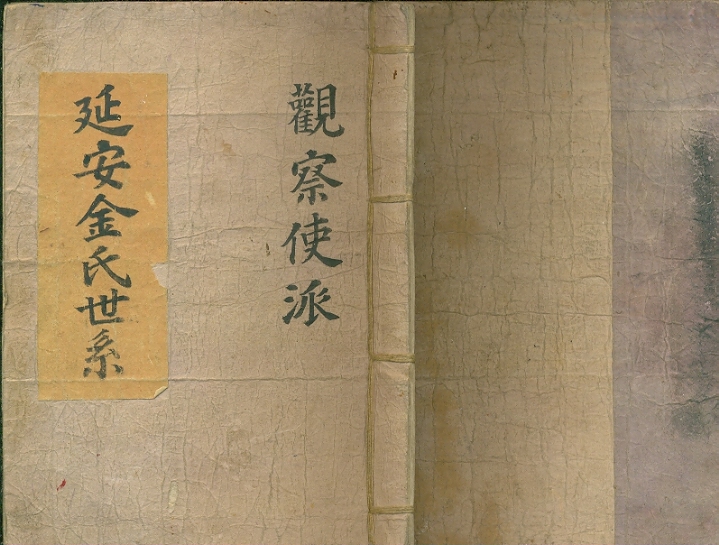 觀察使派
延安金氏世系